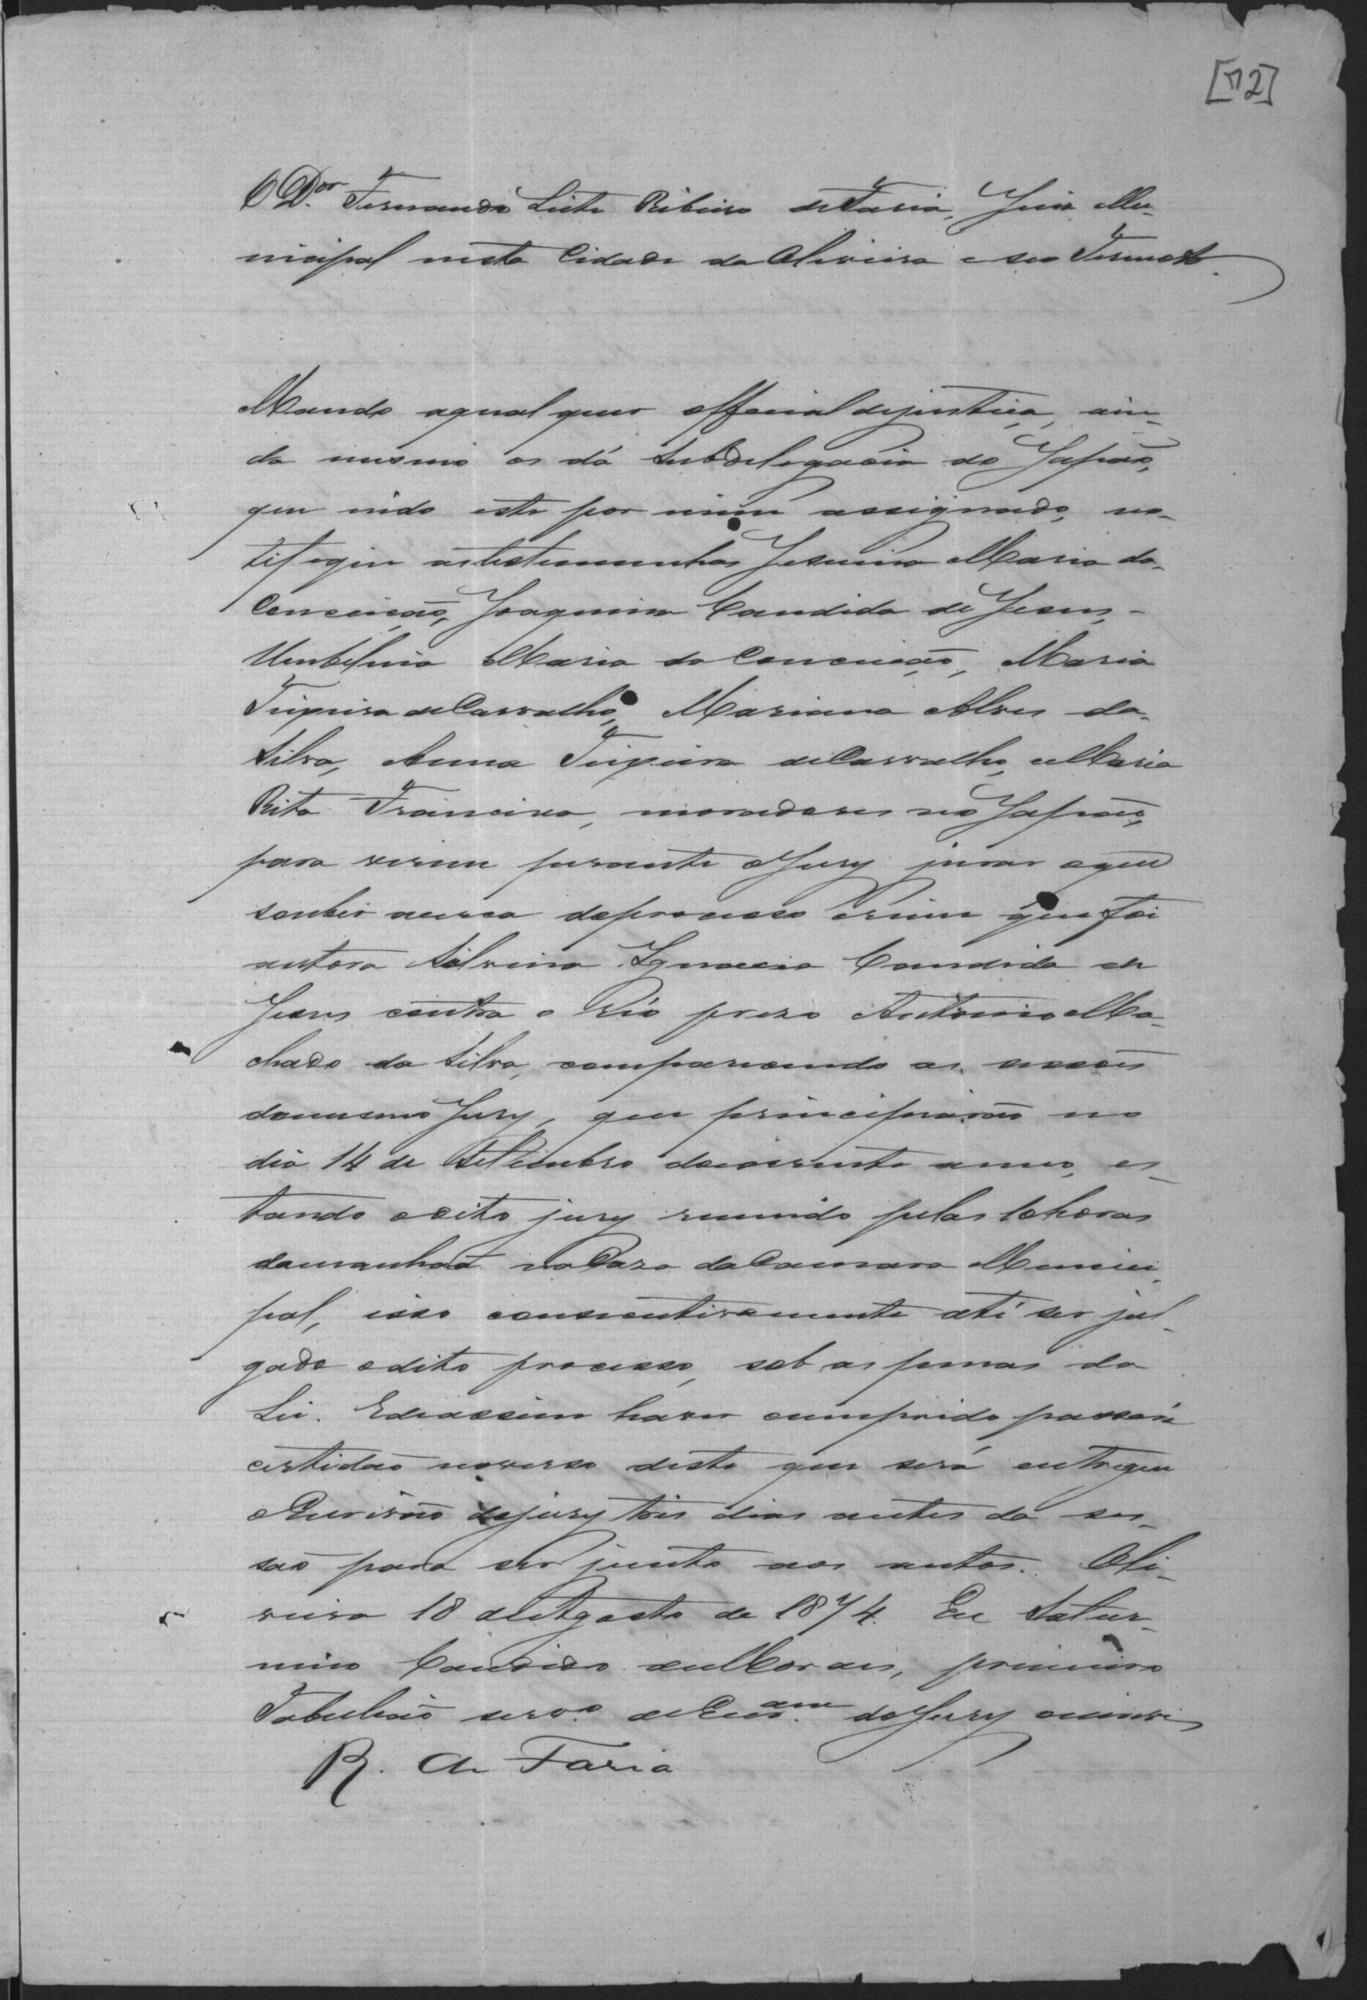 [72]
O D.or Fernando Leite Ribeiro de Faria, Juiz Mu-
nicipal nesta Cidade da Oliveira e seu Termo &
Mando aqual quer official dejustiça, ain-
da mesmo os da Subdelegacia do Japão,
que indo este por mim assignado, no-
tifiquem as testemunhas Jesuina Maria da
Conceição, Joaquina Candida de Jesus, -
Umbelina Maria da Conceição, Maria
Teixeira de Carvalho, Mariana Alves da
Silva, Anna Teixeira de Carvalho, e Maria
Rita Francisca, moradores no Japão,
para virem perante o Jury jurar o que
souber acerca do processo crime que foi
autora Silvina Ignacia Candida de
Jesus contra o Réo prezo Antonio Ma-
chado da Silva, comparecendo as sessões
do mesmo Jury, que principiarão no
dia 14 de Setembro do corrente anno, es-
tando o dito jury reunido pelas 10 horas
da manhaã na Caza da Camara Munici-
pal, isso consecutivamente até ser jul-
gado o dito processo, sob as penas da
Lei. E de assim haver cumprido passará
certidão no verso deste que será entregue
o Escrivão do jury tres dias antes da ses-
são para ser junto aos autos. Oli-
veira 18 de Agosto de 1874. Eu Satur-
nino Candido de Moraes, primeiro
Tabelião serv.o de Esc.am do Jury o escrevi
R. de Faria